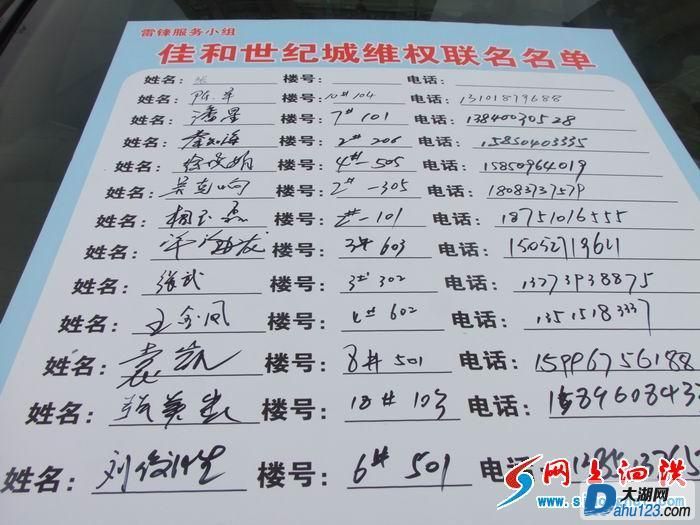 雷锋服务小组
佳和世纪城维权联名名单
姓名: 张 楼号: 电话:
姓名: 楼号: 10# 104 电话: 13101879688
姓名: 潘星 楼号: 7# 101 电话: 13840030528
姓名: 秦如海 楼号: 2# 206 电话: 15850403335
姓名: 徐 楼号: 4#-505 电话: 15850964019
姓名: 吴克响 楼号: 2#-305 电话: 18083737579
姓名: 楼号: 2#-101 电话: 18751016555
姓名: 楼号: 3# 603 电话: 15052719611
姓名: 张武 楼号: 3# 302 电话: 13273938875
姓名: 王金凤 楼号: 4# 602 电话: 13515183337
姓名: 袁凯 楼号: 8# 501 电话: 15996756188
姓名: 张美 楼号: 18# 103 电话: 1589608433
姓名: 刘俊 楼号: 6# 501 电话:
网上泗洪
大湖网
Dahu123.com